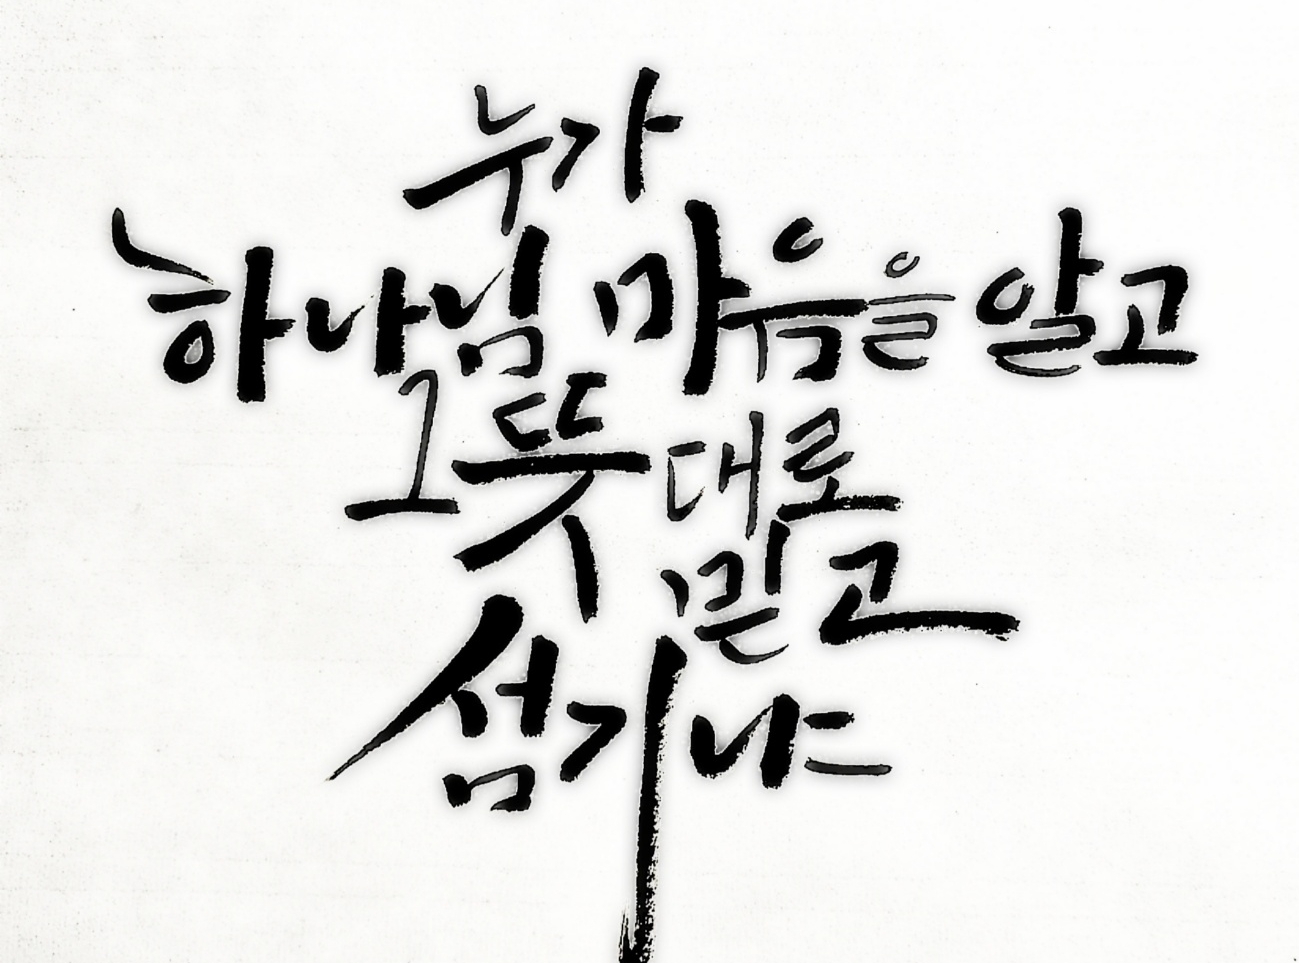 누가
하나님 마음을 알고
그 뜻대로
믿고
섬기냐